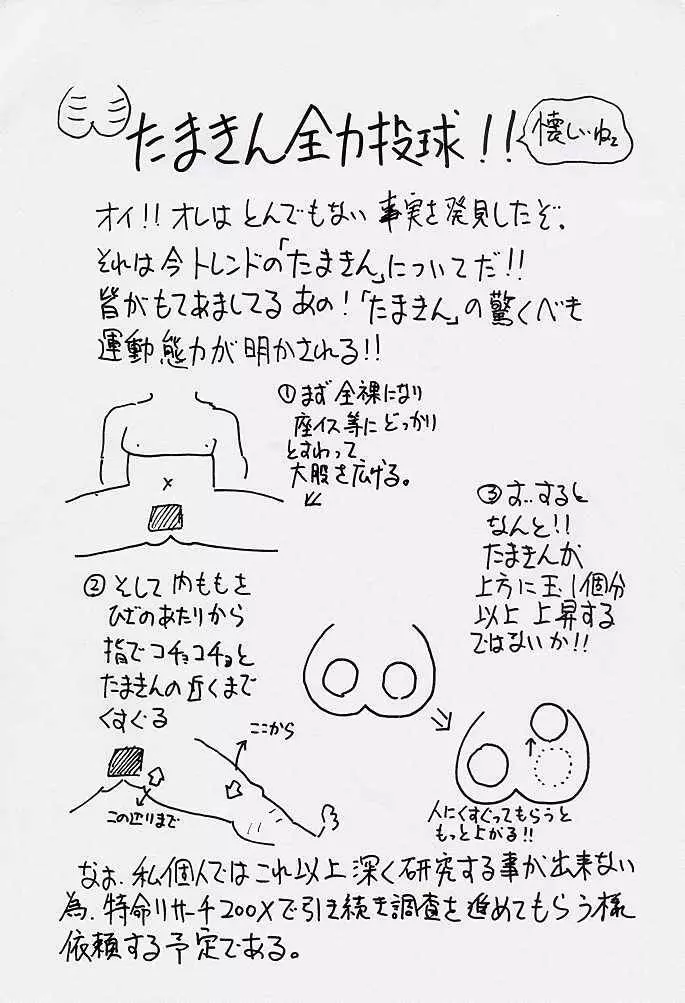 たまきん全力投球!!
懐しいねェ
オイ!!オレはとんでもない事実を発見したぞ。
それは今トレンドの「たまきん」についてだ!!
皆がもてあましてるあの!「たまきん」の驚くべき
運動態力が明かされる!!
①まず全裸になり
座イス等にどっかり
とすわって、
大股を広げる。
②そして内ももを
ひざのあたりから
指でコチョコチョと
たまきんの近くまで
くすぐる
ここから
この辺りまで
③す…すると
なんと!!
たまきんが
上方に玉1個分
以上上昇する
ではないか!!
人にくすぐってもらうと
もっと上がる!!
なお、私個人ではこれ以上深く研究する事が出来ない
為、特命リサーチ200Xで引き続き調査を進めてもらう様
依頼する予定である。